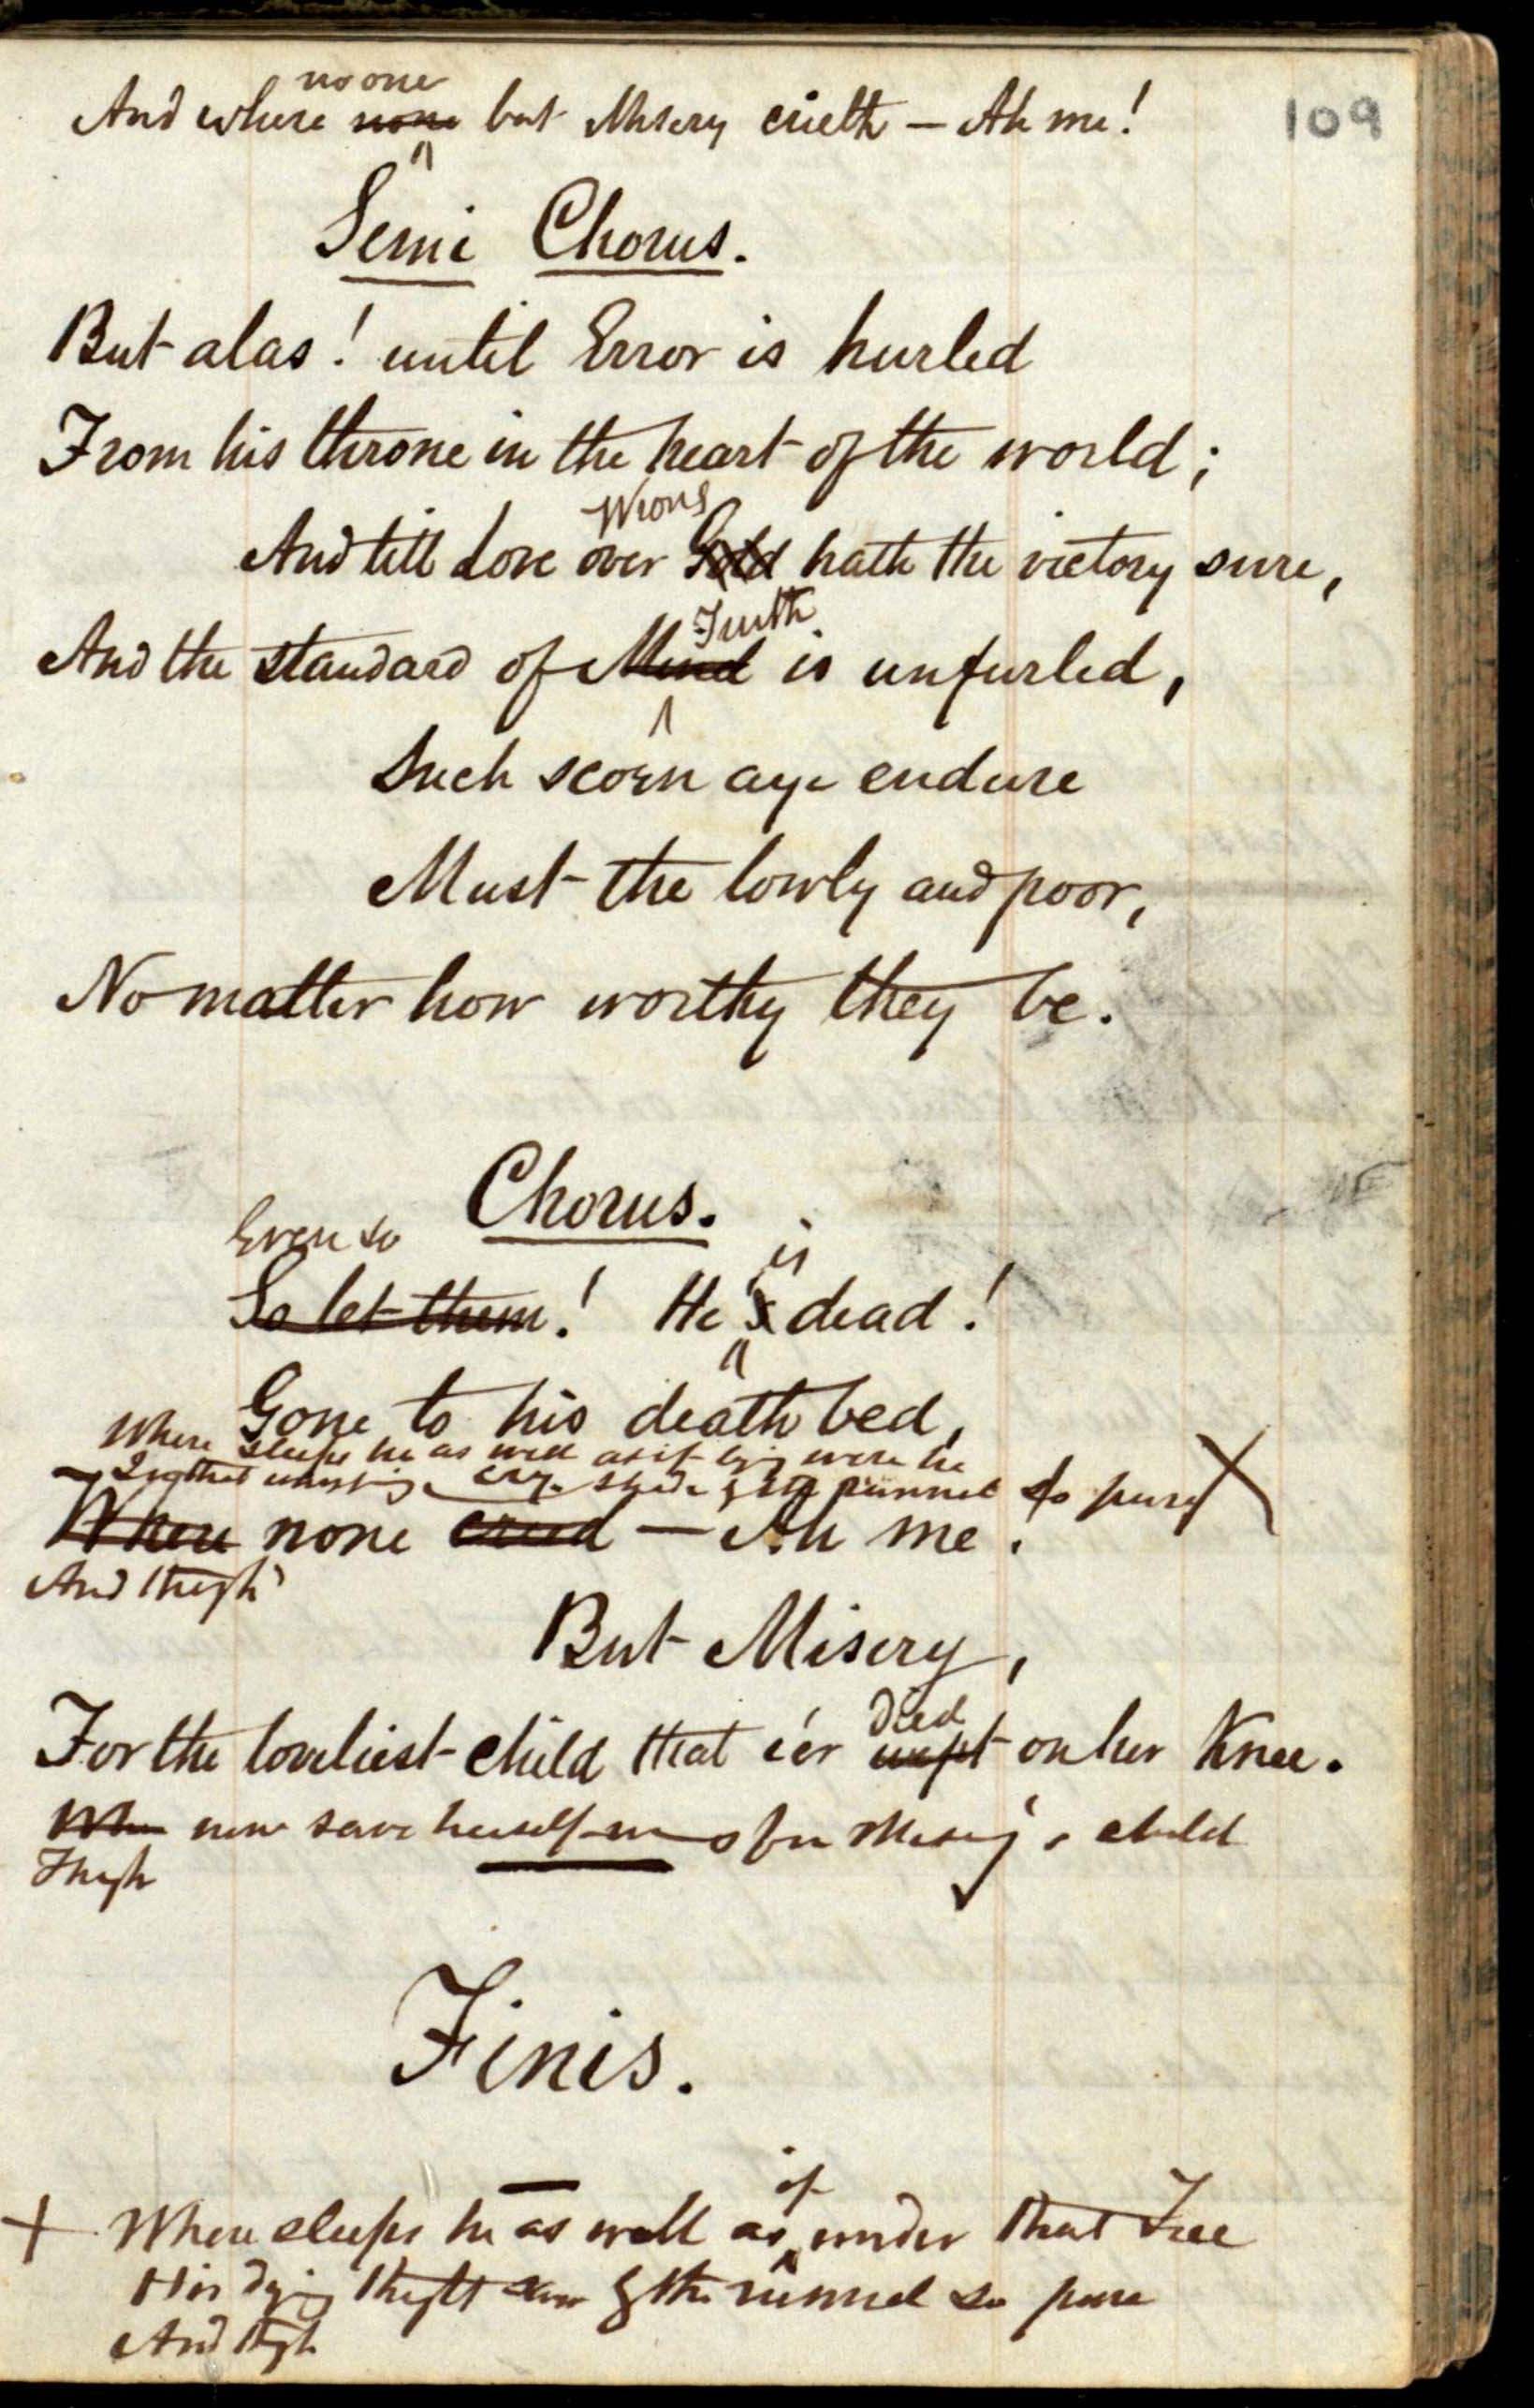 109
no one
And where none but Misery crieth — Ah me!
Semi Chorus.
But alas! until Error is hurled
From his throne in the heart of the world;
Wrong
And till Love over Gold hath the victory sure,
Truth
And the standard of Mind is unfurled,
Such scorn aye endure
Must the lowly and poor,
No matter how worthy they be.
Chorus.
Even so is
So let them! He's dead!
Gone to his death bed,
Where sleeps he as well as if lying were he
by the runnel so pure
Where none cried — Ah me!
And though
But Misery,
Died
For the loveliest child that e'er wept on her Knee.
When none save herself for Misery's child
Though
Finis.
if
+ Where sleeps he as well as under that Tree
His dying thought saw by the runnel so pure
And though